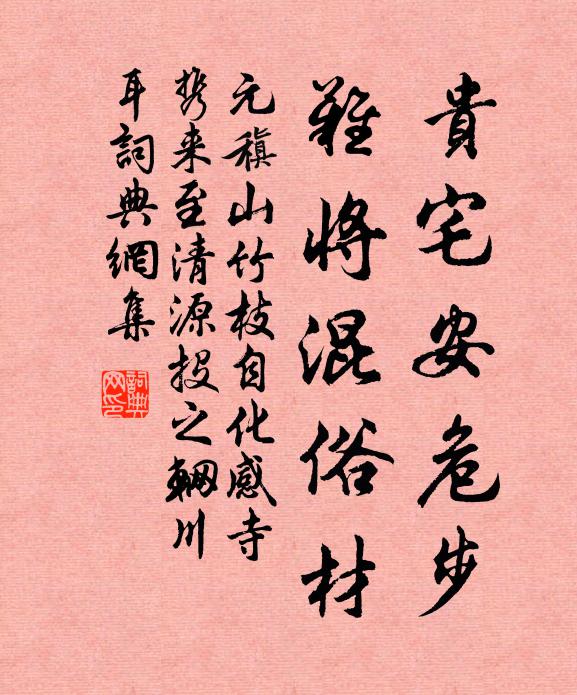 貴宅安危步
難將混俗材
元稹山竹枝自化感寺
攜来至清源投之輞川
耳詞典網集
詞典网印